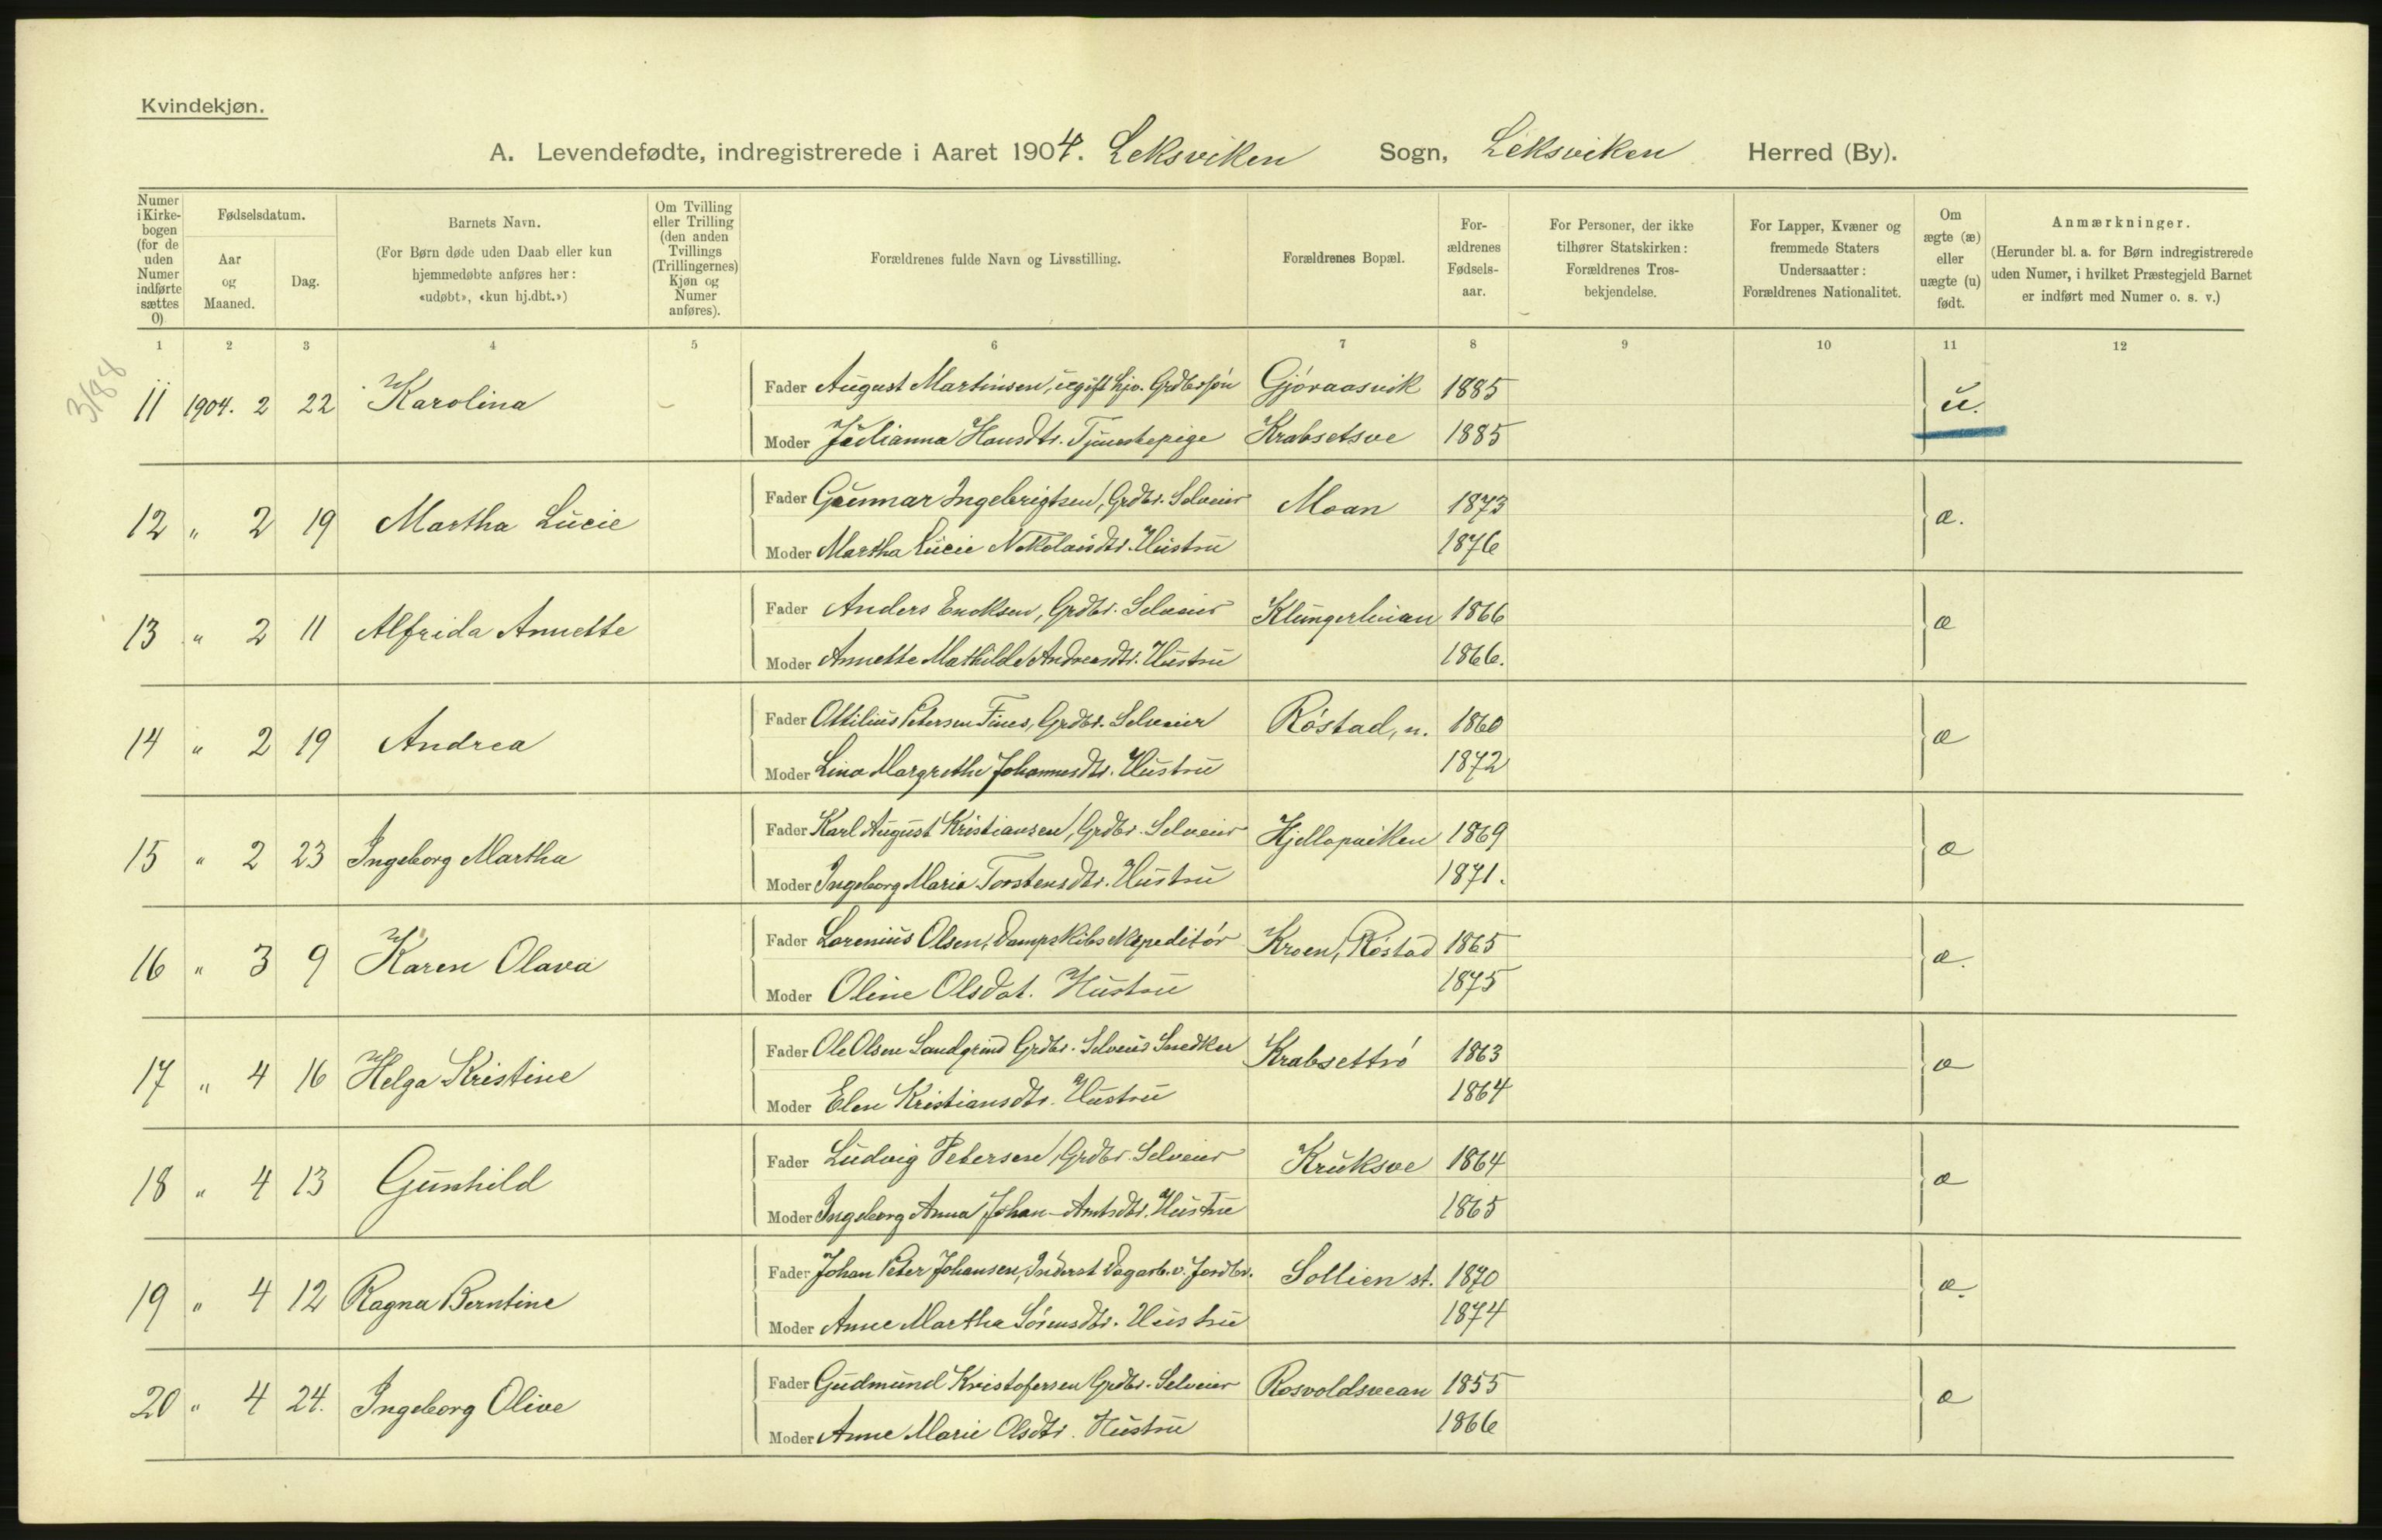 Kvindekjøn.
A. Levendefødte, indregistrerede i Aaret 1904. Leksviken Sogn, Leksviken Herred (By).
Numer i Kirkebogen (for de uden Numer indførte sættes 0)
Fødselsdatum.
Aar og Maaned.
Dag.
Barnets Navn.
(For Børn døde uden Daab eller kun hjemmedøbte anføres her: «udøbt», «kun hj.dbt.»)
Om Tvilling eller Trilling (den anden Tvillings (Trillingernes) Kjøn og Numer anføres).
Forældrenes fulde Navn og Livsstilling.
Forældrenes Bopæl.
Forældrenes Fødselsaar.
For Personer, der ikke tilhører Statskirken: Forældrenes Trosbekjendelse.
For Lapper, Kvæner og fremmede Staters Undersaatter: Forældrenes Nationalitet.
Om ægte (æ) eller uægte (u) født.
Anmærkninger.
(Herunder bl. a. for Børn indregistrerede uden Numer, i hvilket Præstegjeld Barnet er indført med Numer o. s. v.)
1 2 3 4 5 6 7 8 9 10 11 12
3/88
Fader August Martinsen, ugift hjv. Grdbrsøn Gjöraasvik 1885
11 1904. 2 22 Karolina u.
Moder Julianna Hansdtr. Tjenestepige Krabsetsve 1885
Fader Gunnar Ingebrigtsen, Grdbr. Selveier Moan 1873
12 " 2 19 Martha Lucie æ.
Moder Martha Lucie Nikolaisdtr. Hustru 1876
Fader Anders Enoksen, Grdbr. Selveier Klungerhuian 1866
13 " 2 11 Alfrida Annette æ
Moder Annette Mathilde Andreasdtr. Hustru 1866.
Fader Ottilius Petersen Fines, Grdbr. Selveier Röstad, n. 1860
14 " 2 19 Andrea æ
Moder Lina Margrethe Johannesdtr. Hustru 1872
Fader Karl August Kristiansen, Grdbr. Selveier Hjellapviken 1869
15 " 2 23 Ingeborg Martha æ
Moder Ingeborg Maria Torstensdtr. Hustru 1871.
Fader Lorenius Olsen, Dampskibsekspeditör Kroen, Röstad 1865
16 " 3 9 Karen Olava æ.
Moder Oline Olsdat. Hustru 1875
Fader Ole Olsen Sandgrind Grdbr. Selveier Snedker Krabsettrö 1863
17 " 4 16 Helga Kristine æ
Moder Elen Kristiansdtr. Hustru 1864
Fader Ludvig Petersen, Grdbr. Selveier Kruksve 1864
18 " 4 13 Gunhild æ
Moder Ingeborg Anna Johan-Arntsdtr. Hustru 1865
Fader Johan Peter Johansen, Inderst Dagarb. v. Jordbr. Sollien st. 1870
19 " 4 12 Ragna Berntine æ.
Moder Anne Martha Sörensdtr. Hustru 1874
Fader Gudmund Kristofersen Grdbr. Selveier Rosvoldsvean 1855
20 " 4 24. Ingeborg Olive æ
Moder Anne Marie Olsdtr. Hustru 1866